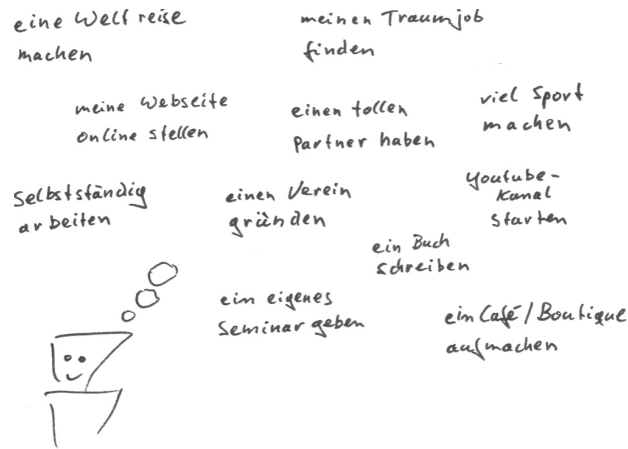 eine Weltreise
machen
meinen Traumjob
finden
meine Webseite
Online stellen
einen tollen
Partner haben
viel Sport
machen
Selbstständig
arbeiten
einen Verein
gründen
Youtube-
Kanal
starten
ein Buch
schreiben
ein eigenes
Seminar geben
ein Café/Boutique
aufmachen